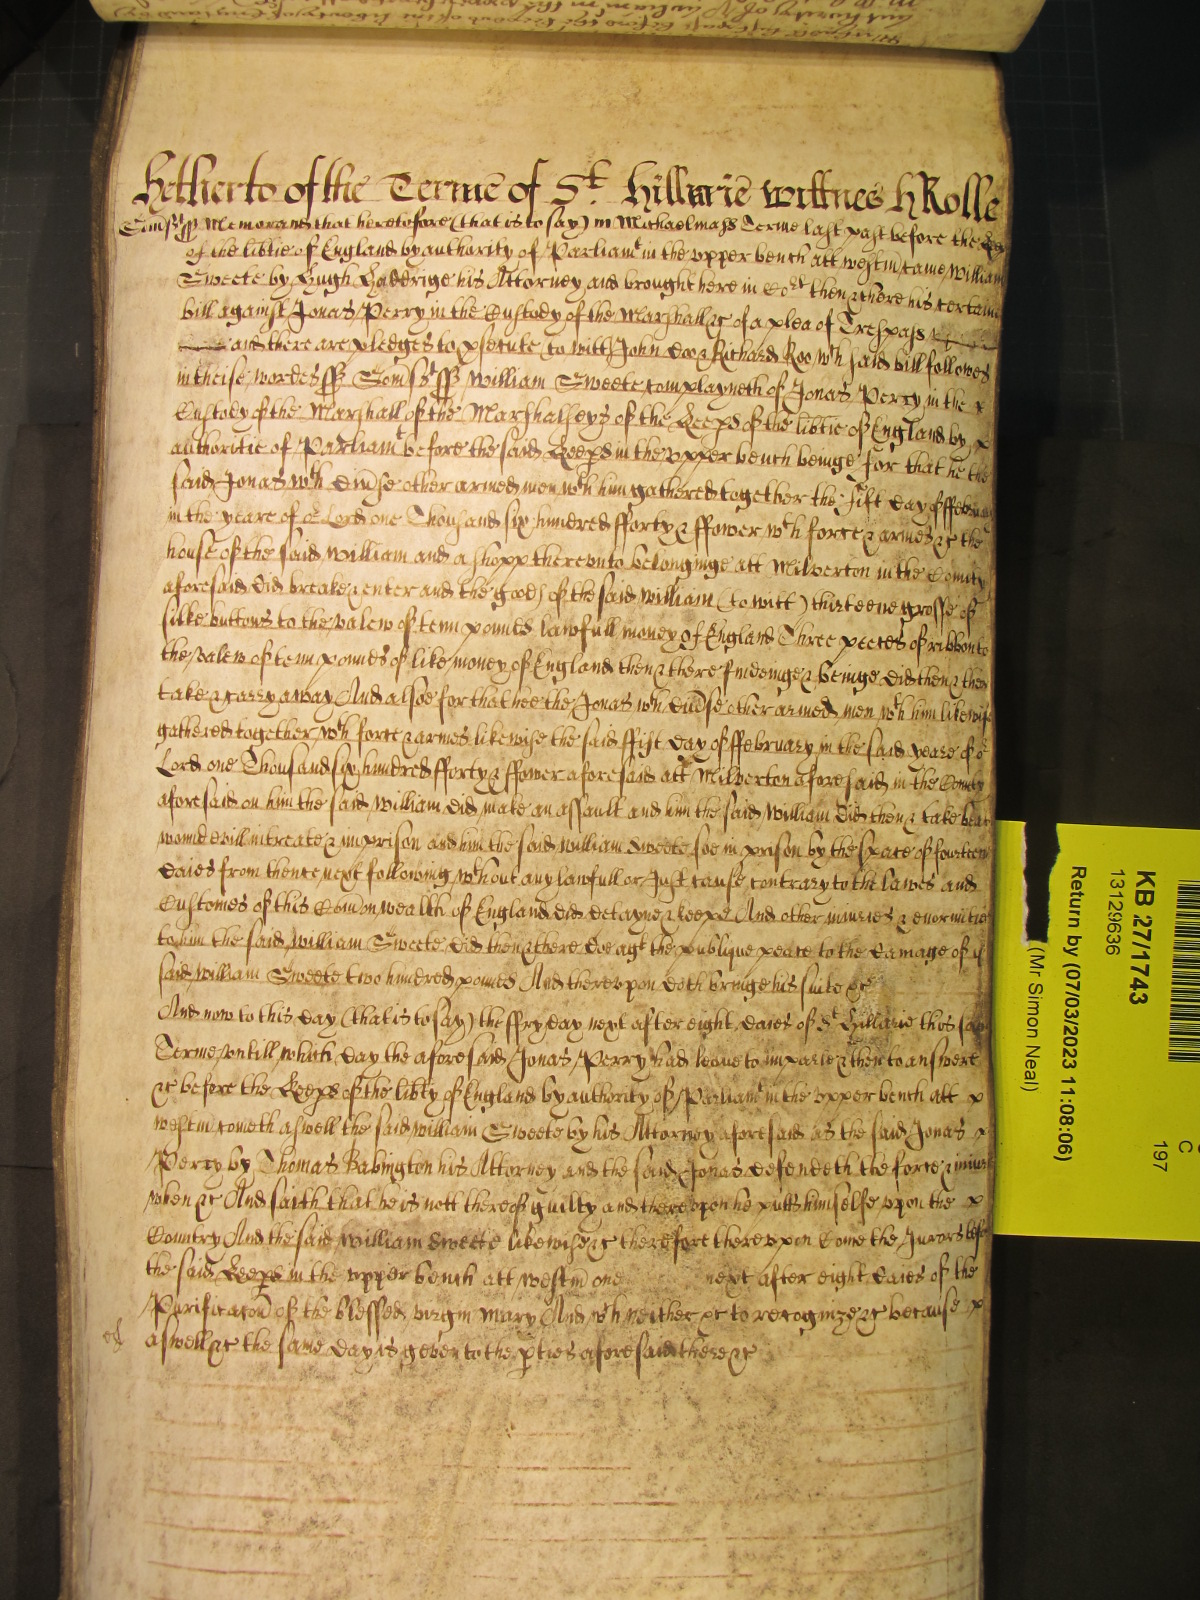 Hetherto of the Terme of St. Hillarie wittnes H Rolle
Somst ss Memorand that heretofore (that is to say) in Michaelmass Terme last past before the
of the libtie of England by authority of Parliamt in the vpper bench att westm came William
Sweete by Hugh his Attorney and brought here in Cort then & there his certaine
bill against Jonas Perry in the Custody of the Marshall &c of a plea of Trespass
and there are pledges to psecute to witt John Doo & Richard Roo wch said bill followes
in theise wordes ss Somst ss William Sweete complayneth of Jonas Perry in the
Custody of the Marshall of the Marshalseys of the Keeps of the libtie of England by
authoritie of Parliamt before the said Keeps in the vpper bench beinge for that he the
said Jonas wth divse other armed men wth him gathered together the fift day of ffebruary
in the yeare of or Lord one Thousand six hundred fforty & ffower wth force & armes &c the
house of the said William and a shopp therevnto belonginge att Milverton in the County
aforesaid did breake & enter and the goods of the said William (to witt) thirteene grosse of
silke buttons to the valew of tenn pounds lawfull money of England Three peeces of ribbon to
the valew of tenn pounds of like money of England then & there findeinge & beinge did then & there
take & carry away And alsoe for that hee the Jonas wth divse other armed men wth him likewise
gathered together wth force & armes likewise the said ffift day of ffebruary in the said yeare of or
Lord one Thousand six hundred fforty & ffower aforesaid att Milverton aforesaid in the County
aforesaid on him the said William did make an assault and him the said William did then & take beat
wound evill intreate & imprison and him the said William Sweete soe in prison by the space of fourteen
daies from thence next following wthout any lawfull or Just cause contrary to the lawes and
Customes of this Comonwealth of England did detayne & keepe And other iniuries & enormities
to him the said William Sweete did then & there doe agt the publique peace to the damage of
said William Sweete two hundred pounds And therevpon doth bringe his suite &c
And now to this day (that is to say) the ffryday next after eight daies of St Hillarie this same
Terme vntill which day the aforesaid Jonas Perry had leaue to imparle & then to answere
&c before the Keeps of the libty of England by authority of Parliamt in the vpper bench att
westm cometh aswell the said William Sweete by his Attorney aforesaid as the said Jonas
Perry by Thomas Babington his Attorney and the said Jonas defendeth the force & iniury
when &c And saith that he is nott thereof guilty and therevpon he putts himselfe vpon the
Country And the said William Sweete likewise &c therefore therevpon Come the Jurors before
the said Keeps in the vpper bench att westm one next after eight daies of the
Purificacon of the blessed virgin Mary And wch neither &c to recognize &c because
aswell &c the same day is geven to the pties aforesaid there &c
KB 27/1743
13129636
Return by (07/03/2023 11:08:06)
(Mr Simon Neal)
C
197